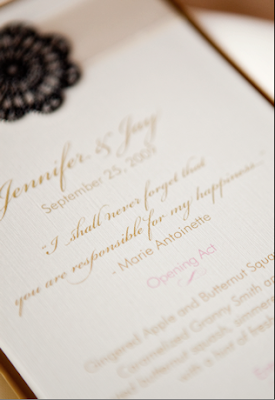 Jennifer & Jay
September 25, 2009
"I shall never forget that
you are responsible for my happiness."
- Marie Antoinette
Opening Act
Gingered Apple and Butternut Squa
Caramelized Granny Smith
butternut squash,
with a hint of fresh